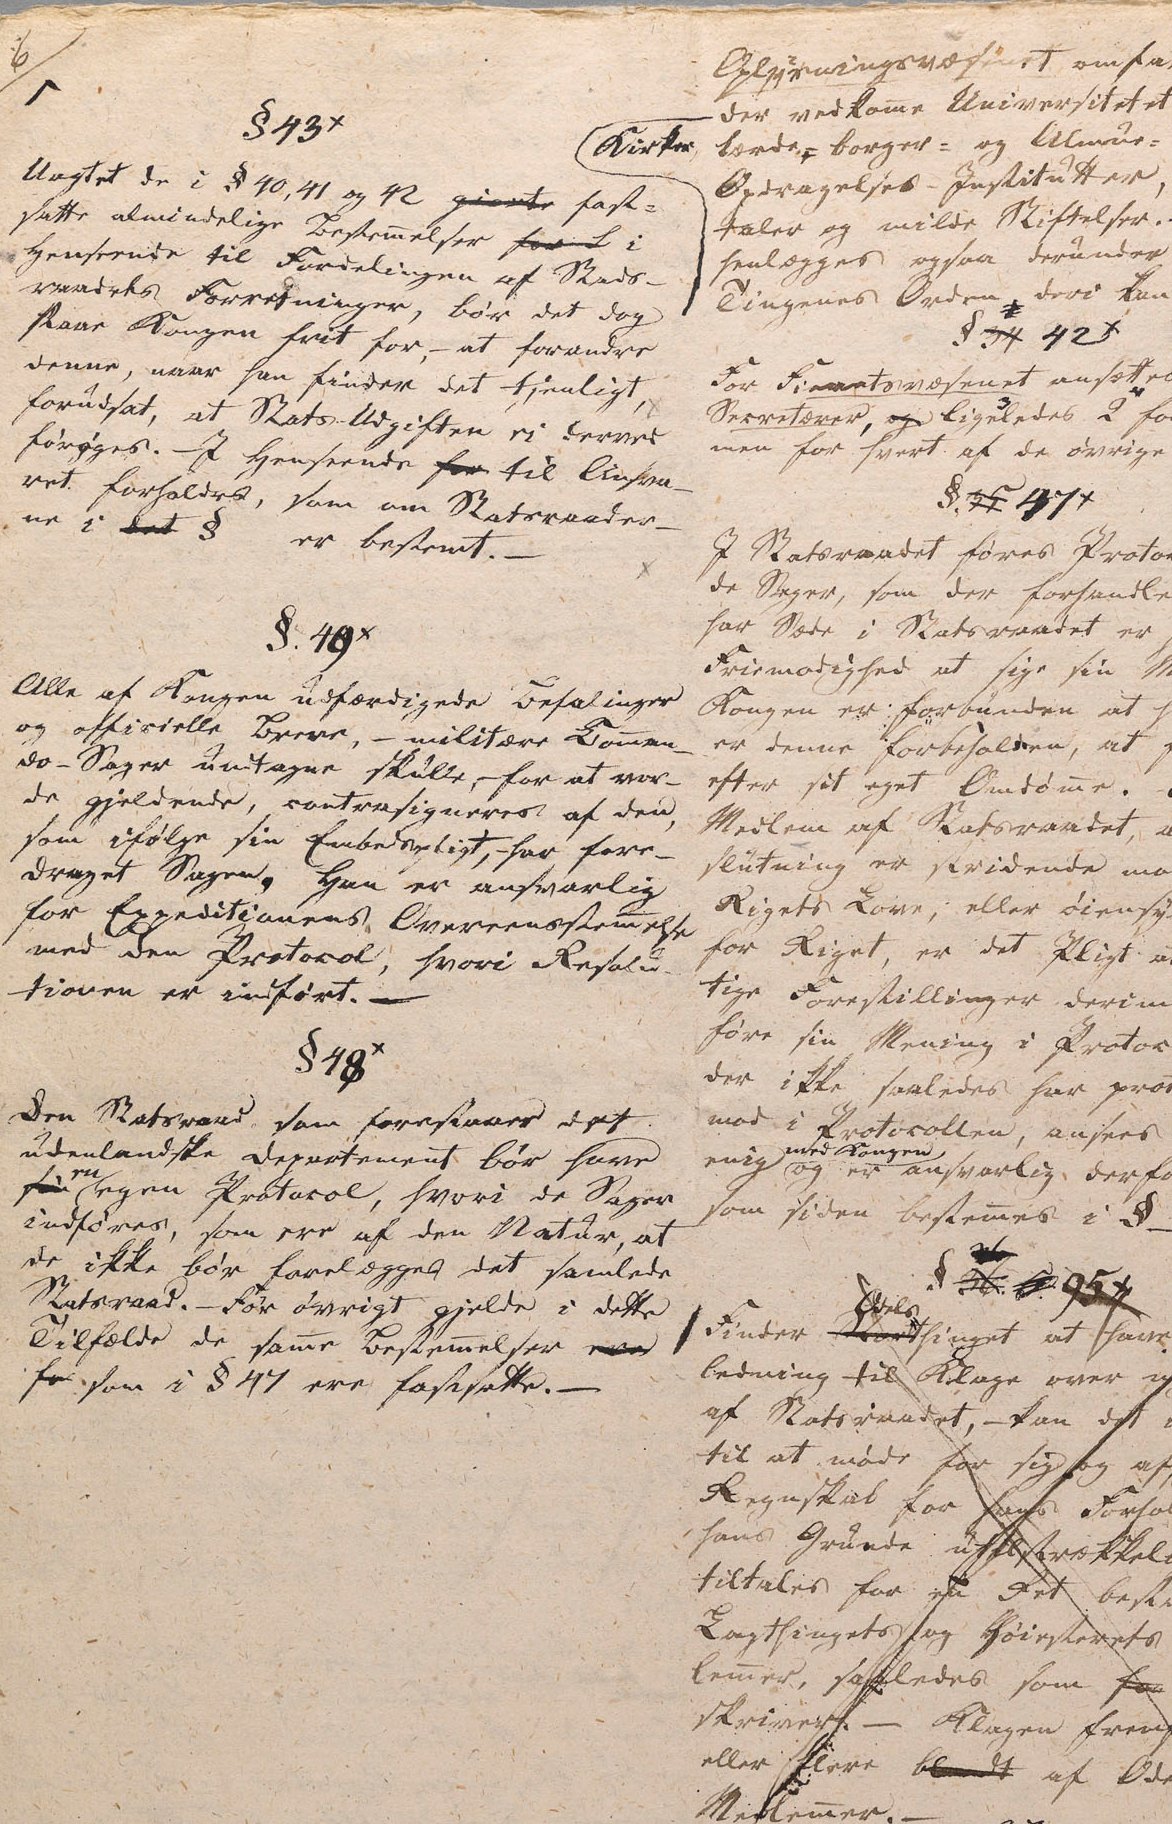 6
1
§ 43 x
Uagtet de i § 40, 41 og 42 giorte fast=
satte almindelige Bestem̅elser i
Henseende til Fordelingen af Stads-
raadets Forretninger, bør det dog
staae Kongen frit for, - at forandre
denne, naar han finder det tjenligt,
forudsat, at Stats-Udgiften ei derved
forøges. - I Henseende for til Ansva-
ret forholdes, som om Statsraader-
ne i det § er bestemt. -
§. 49 x
Alle af Kongen udfærdigede Befalinger
og officielle Breve, - militære Com̅an-
do-Sager undtagne skulle, - for at vor-
de gjeldende, contrasigneres af den,
som ifølge sin Embedspligt, - har fore-
draget Sagen. Han er ansvarlig
for Expeditionens Overeensstem̅else
med den Protocol, hvori Resolu-
tionen er indført. -
§ 48 x
Den Statsraad som forestaaer det
udenlandske Departement bør have
sin en egen Protocol, hvori de Sager
indføres, som ere af den Natur, at
de ikke bør forelægges det samlede
Statsraad. - For øvrigt gjelde i dette
Tilfælde de sam̅e Bestem̅elser
som i § 47 ere fastsatte. -
Kirke
Oplysningsvæsenet omfa
der vedkom̅e Universitetet
lærde, borger= og Almue=
Opdragelses-Institutter,
taler og milde Stiftelser.
henlægges ogsaa derunder
Tingenes Orden, deri kan
§ 34 42 x
For Finantsvæsenet ansætte
Secretærer, og ligeledes 2 fo
men for hvert af de øvrige
§. 35 47 x
I Statsraadet føres Protoc
de Sager, som der forhandle
har Sæde i Statsraadet er
Friemodighed at sige sin M
Kongen er forbunden at h
er denne forbeholden, at
efter sit eget Omdøm̅e.
Medlem af Statsraadet, a
slutning er stridende mo
Rigets Love, eller øiensy
for Riget, er det Pligt a
tige Forestillinger derim
føre sin Mening i Protoc
der ikke saaledes har prot
mod i Protocollen, ansees
enig med Kongen og er ansvarlig derfo
som siden bestem̅es i §
§ 36 95 x
Finder Odels Storthinget at have
ledning til Klage over
af Statsraadet, - kan det
til at møde for sig og af
Regnskab for hans Forhol
hans Grunde utilstrækkeli
tiltales for en Ret best
Lagthingets og Høiesterets
lem̅er, saaledes som
skrives. - Klagen frem
eller flere blandt af Ode
Medlem̅er. -